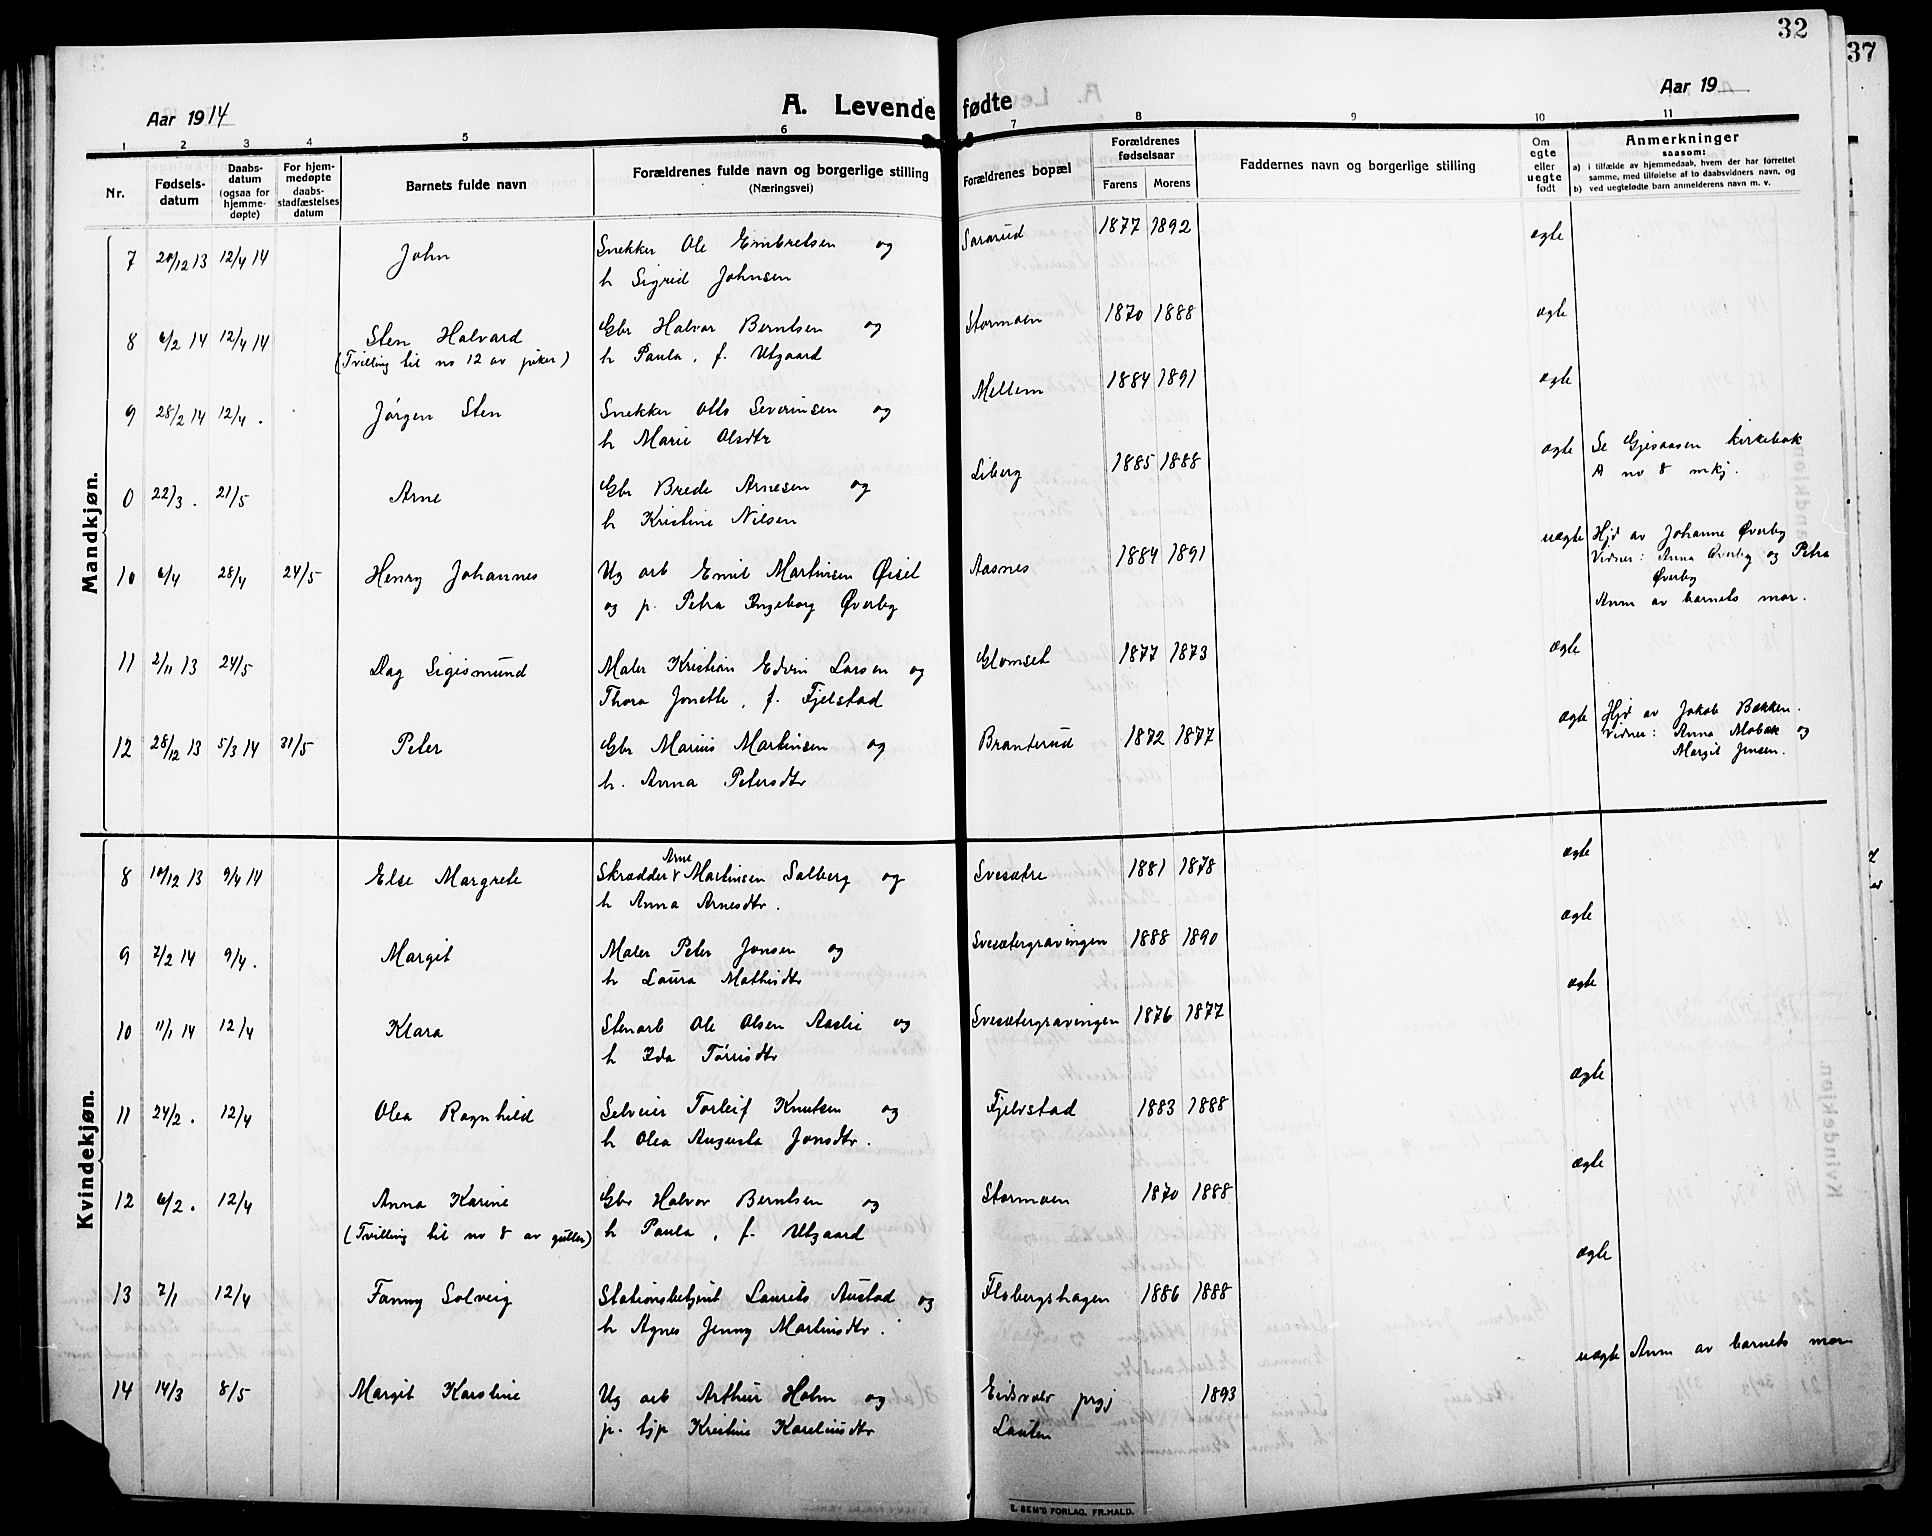 32
37
Aar 1914
A. Levende fødte
Aar 19
1 2 3 4 5 6 7 8 9 10 11
Nr.
Fødsels-datum
Daabs-datum (ogsaa for hjemme-døpte)
For hjem-medøpte daabs-stadfæstelses datum
Barnets fulde navn
Forældrenes fulde navn og borgerlige stilling
(Næringsvei)
Forældrenes bopæl
Forældrenes fødselsaar
Farens Morens
Faddernes navn og borgerlige stilling
Om egte eller uegte født
Anmerkninger
saasom:
a) i tilfælde av hjemmedaab, hvem der har forrettet samme, med tilføielse af to daabsvidners navn, og
b) ved uegtefødte barn anmelderens navn m. v.
Mandkjøn.
7 20/12 13 12/4 14 John Snekker Ole Embretsen og Sararud 1877 1892 ægte
h Sigrid Johnsen
8 6/2 14 12/4 14 Sten Halvard Gbr Halvor Berntsen og Stormoen 1870 1888 ægte
(Tvilling til no 12 av piker) h Paula, f. Utgaard
9 28/2 14 12/4 . Jørgen Sten Snekker Otto Severinsen og Mellem 1884 1891 ægte
h Marie Olsdtr
0 22/3 . 21/5 Arne Gbr Brede Arnesen og Liberg 1885 1888 ægte Se Gjesaasen kirkebok
h Kristine Nilsen A no 8 mkj.
10 6/4 28/4 24/5 Henry Johannes Ug arb Emil Martinsen Øiset Aasnes 1884 1891 uægte Hjd av Johanne Øverby
og p. Petra Ingeborg Øverby Vidner: Anna Øverby og Petra
Øverby
Anm av barnets mor.
11 2/11 13 24/5 Dag Sigismund Maler Kristian Edvin Larsen og Glomset 1877 1873 ægte
Thora Jonette, f. Fjelstad
12 28/12 13 5/3 14 31/5 Peter Gbr Marius Martinsen og Branterud 1872 1877 ægte Hjd av Jakob Bakken.
h. Anna Petersdtr Vidner: Anna Mobæk og
Margit Jensen.
Kvindekjøn.
8 10/12 13 9/4 14 Else Margrete Skrædder Arne Martinsen Solberg og Svesætre 1881 1878 ægte
h Anna Arnesdtr.
9 7/2 14 9/4. Margit Maler Peter Jonsen og Svesætergravingen 1888 1890 ægte
h Laura Mathisdtr
10 11/1 14 12/4 Klara Stenarb Ole Olsen Aaslie og Svesætergravingen 1876 1877 ægte
h Ida Tørrisdtr
11 24/2 . 12/4 Olea Ragnhild Selveier Torleif Knutsen og Fjelstad 1883 1888 ægte
h Olea Augusta Jonsdtr.
12 6/2 . 12/4 Anna Karine Gbr Halvor Berntsen og Stormoen 1870 1888 ægte
(Tvilling til no 8 av gutter) h Paula, f. Utgaard
13 7/1 12/4 Fanny Solveig Stationsbetjent Laurits Austad og Flobergshagen 1886 1888 ægte
h Agnes Jenny Martinsdtr.
14 14/3 8/5 Margit Karoline Ug arb Arthur Holm og Eidsvold prgj 1893 uægte Anm av barnets mor
p. tjp Kristine Kareliusdtr Lauten
E. SEM'S FORLAG, FR.HALD.